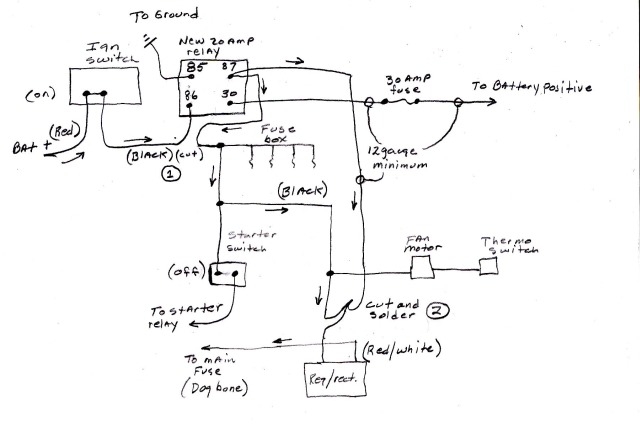 To Ground
Ign
switch
New 20 Amp
relay
85 87
86 30
(on)
(Red)
BAt +
(BlAck) (cut)
1
Fuse
box
30 Amp
fuse
To BAttery positive
12 gauge
minimum
(BlAck)
Starter
switch
(off)
To starter
relay
FAn
motor
Thermo
switch
cut and
solder 2
(Red/white)
To mAin
Fuse
(Dogbone)
Reg/rect.